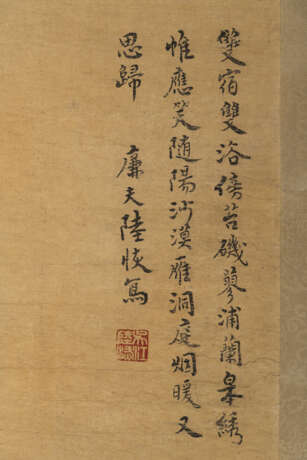 雙宿雙浴傍苔磯蓼浦蘭皋綉
帷應笑随陽沙漠雁洞庭烟暖又
思歸 廉夫陸恢寫
吳江陸恢